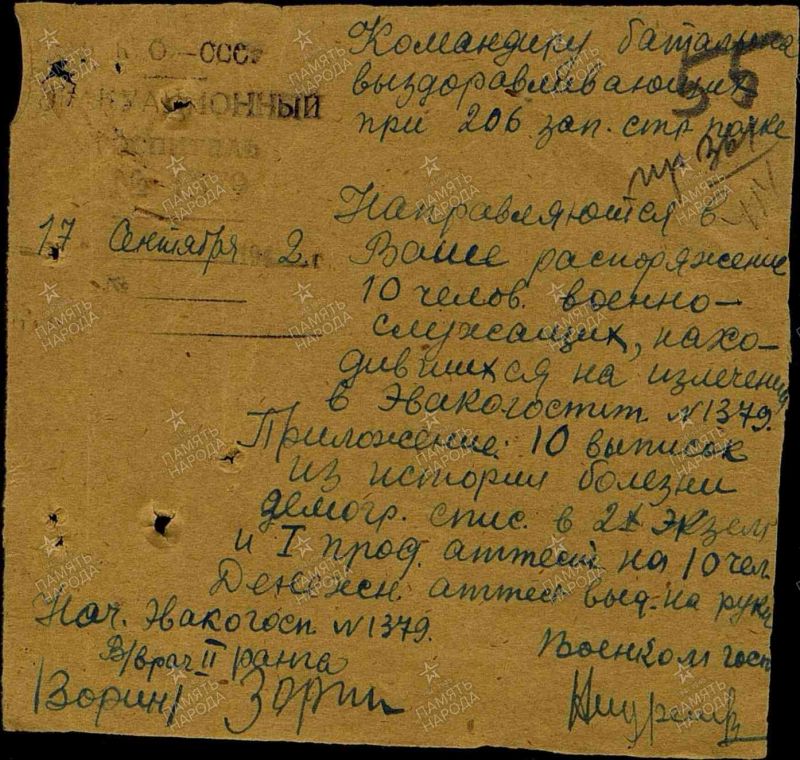 НКО-СССР
ЭВАКУАЦИОННЫЙ
ГОСПИТАЛЬ
№ 1379
17 Сентября 194 2 г
Командиру батальона
выздоравливающих
при 206 зап. стр полке
55
Направляются в
Ваше распоряжение
10 челов. военно-
служащих, нахо-
дившихся на излечении
в Эвакогоспит. №1379.
Приложение: 10 выписок
из истории болезни
демогр. спис. в 2х экземп
и I прод. аттест на 10 чел.
Денежн. аттест выд. на руки
Нач. Эвакогосп. №1379.
В/врач II ранга
/Зорин/ Зорин
Военком госп
ПАМЯТЬ НАРОДА